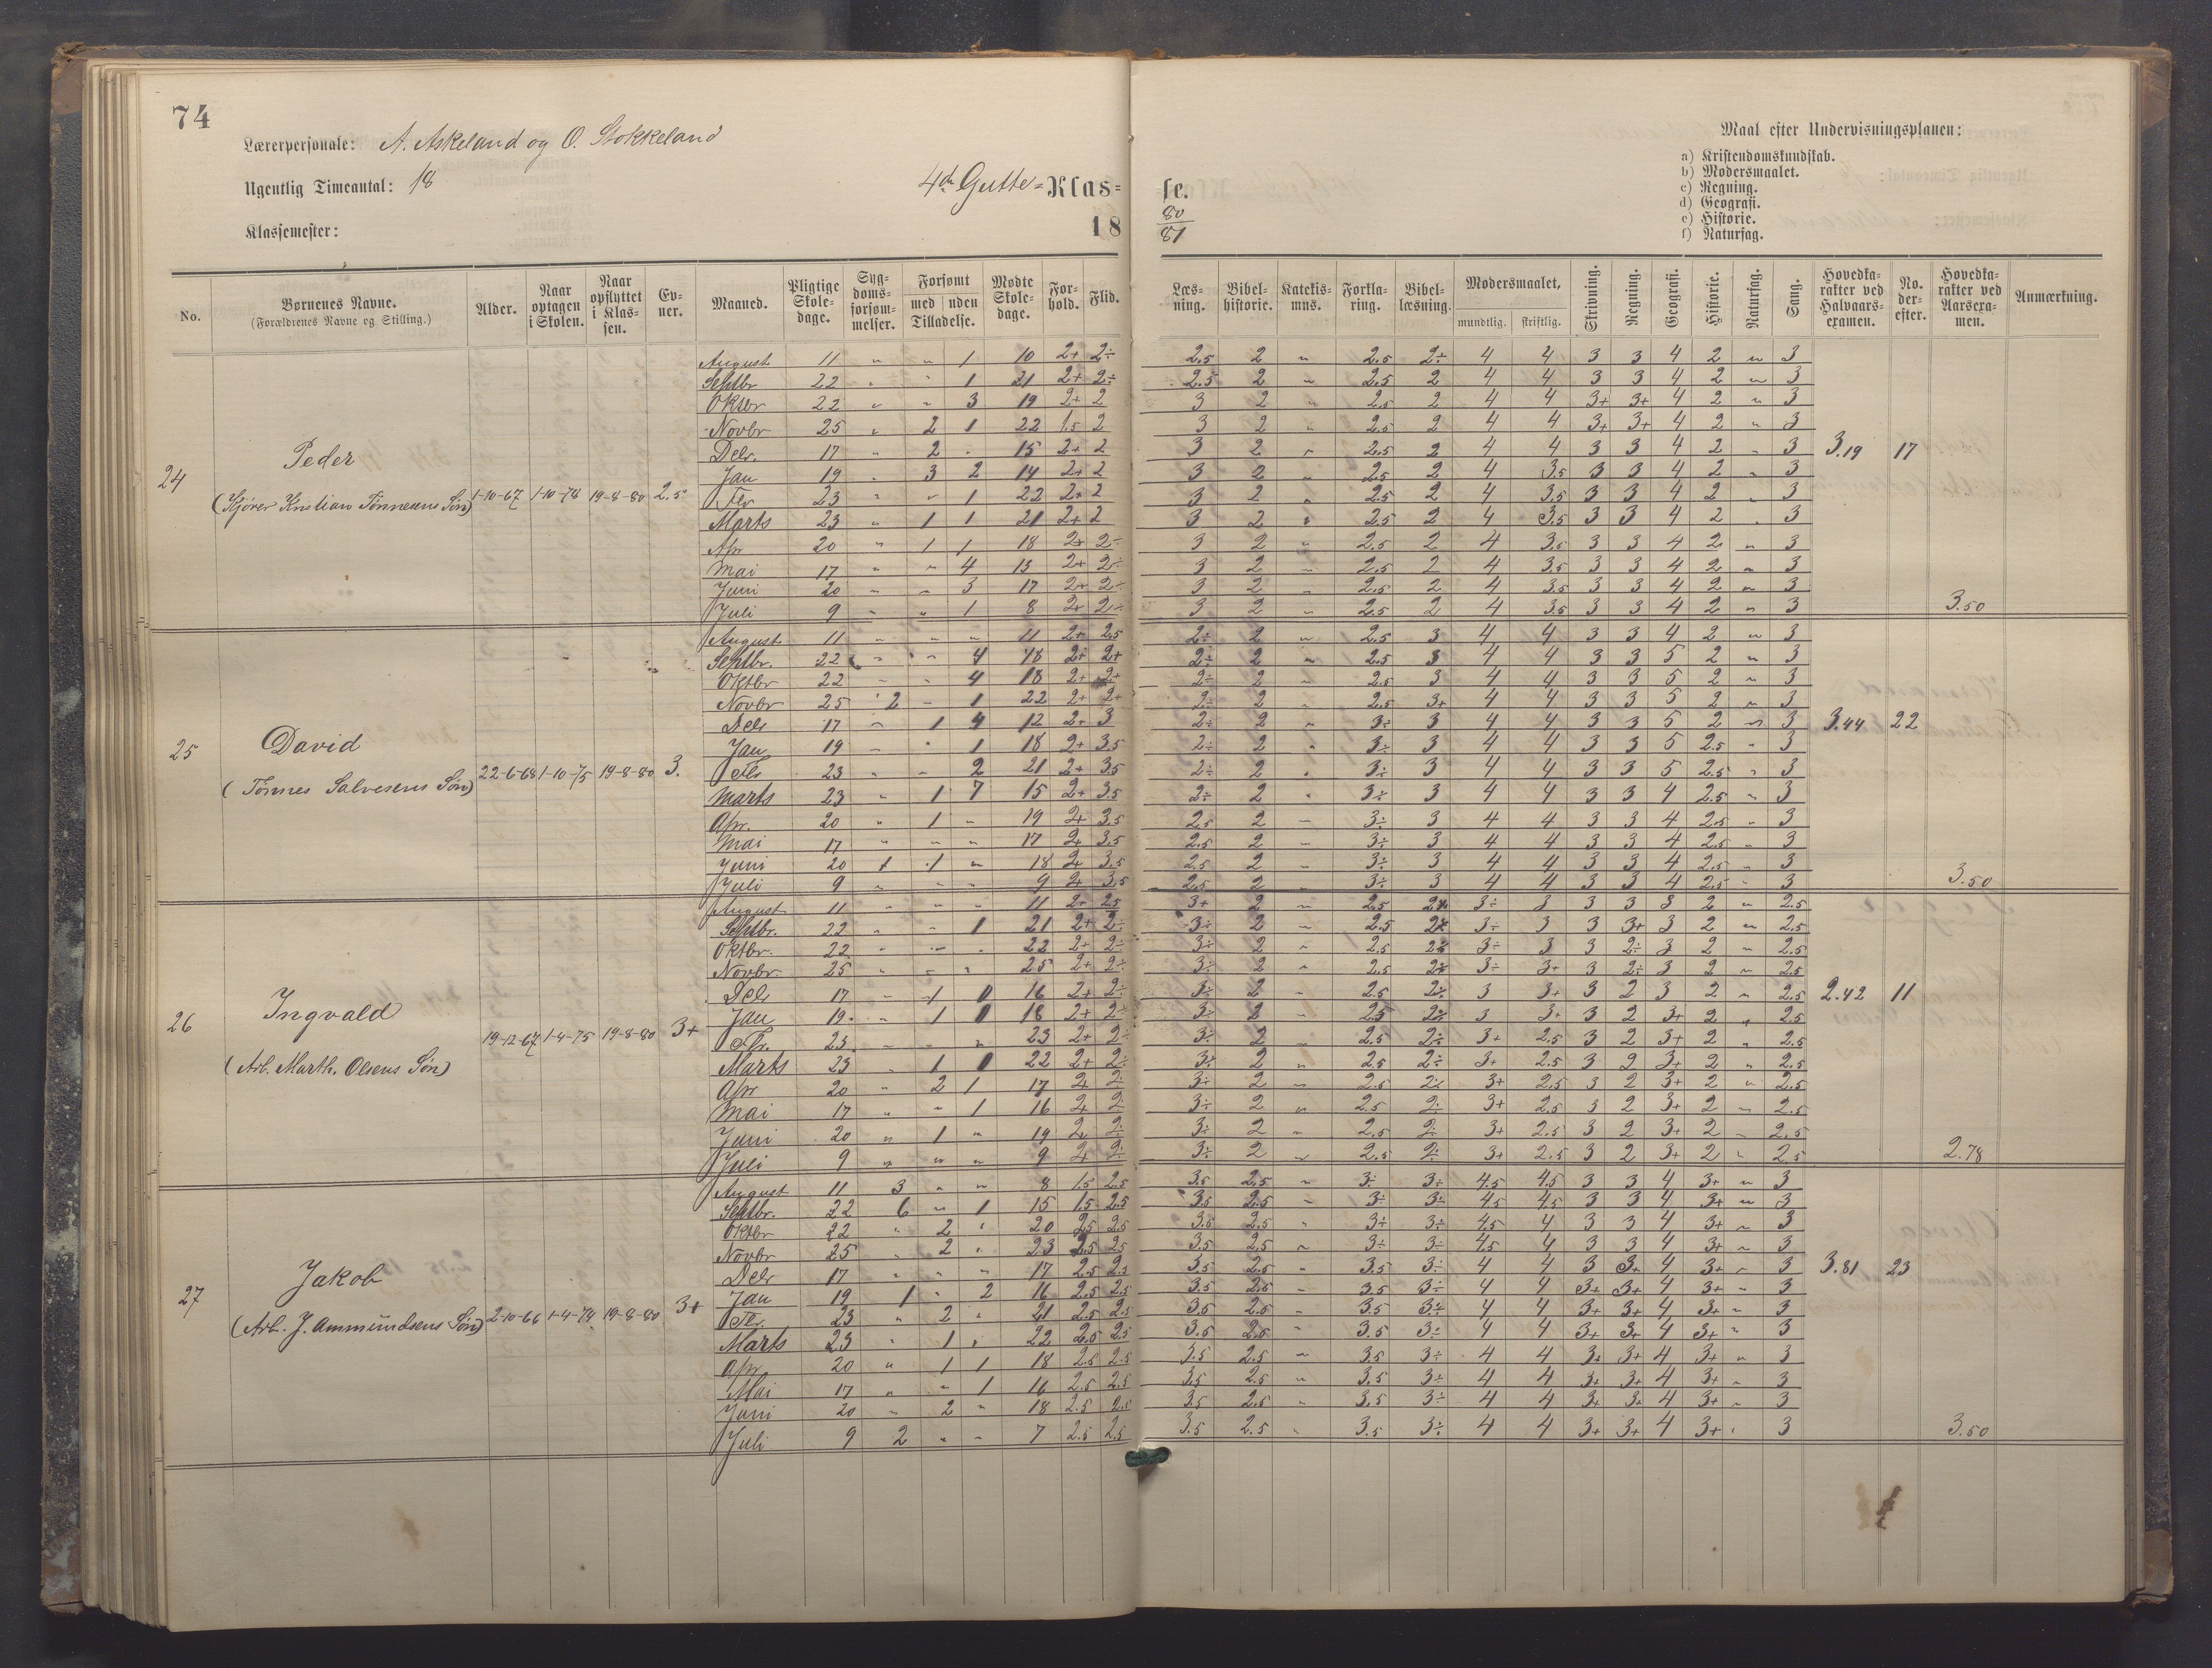 74
Lærerpersonale: A. Askeland og O. Stokkeland
Ugentlig Timeantal: 18
4de Gutte-Klasse.
Klassemester:
18 80/81
Maal efter Undervisningsplanen:
a) Kristendomskundskab.
b) Modersmaalet.
c) Regning.
d) Geografi.
e) Historie.
f) Naturfag.
No. | Børnenes Navne. (Forældrenes Navne og Stilling.) | Alder. | Naar optagen i Skolen. | Naar opflyttet i Klassen. | Evner. | Maaned. | Pligtige Skoledage. | Sygdomsforsømmelser. | Forsømt med uden Tilladelse. | Mødte Skoledage. | Forhold. | Flid. | Læsning. | Bibelhistorie. | Katekismus. | Forklaring. | Bibellæsning. | Modersmaalet, mundtlig. skriftlig. | Skrivning. | Regning. | Geografi. | Historie. | Naturfag. | Sang. | Hovedkarakter ved Halvaarsexamen. | No. derefter. | Hovedkarakter ved Aarsexamen. | Anmærkning.
24 Peder
(Kjører Kristian Tønnesens Søn) 1-10-67 1-10-74 19-8-80 2.5
August 11 " " 1 10 2+ 2÷ 2.5 2 " 2.5 2÷ 4 4 3 3 4 2 " 3
Septbr 22 " " 1 21 2+ 2÷ 2.5 2 " 2.5 2 4 4 3 3 4 2 " 3
Oktbr 22 " " 3 19 2+ 2 3 2 " 2.5 2 4 4 3+ 3+ 4 2 " 3
Novbr 25 " 2 1 22 1.5 2 3 2 " 2.5 2 4 4 3+ 3+ 4 2 " 3
Debr. 17 " 2 " 15 2+ 2 3 2 " 2.5 2 4 4 3 3 4 2 " 3 3.19 17
Jan 19 " 3 2 14 2+ 2 3 2 " 2.5 2 4 3.5 3 3 4 2 " 3
Fbr 23 " " 1 22 2+ 2 3 2 " 2.5 2 4 3.5 3 3 4 2 " 3
Marts 23 " 1 1 21 2+ 2 3 2 " 2.5 2 4 3.5 3 3 4 2 " 3
Apr 20 " 1 1 18 2+ 2÷ 3 2 " 2.5 2 4 3.5 3 3 4 2 " 3
Mai 17 " " 4 13 2+ 2÷ 3 2 " 2.5 2 4 3.5 3 3 4 2 " 3
Juni 20 " " 3 17 2+ 2÷ 3 2 " 2.5 2 4 3.5 3 3 4 2 " 3
Juli 9 " " 1 8 2+ 2÷ 3 2 " 2.5 2 4 3.5 3 3 4 2 " 3 3.50
25 David
(Tønnes Salvesens Søn) 22-6-68 1-10-75 19-8-80 3.
August 11 " " " 11 2+ 2.5 2÷ 2 " 2.5 3 4 4 3 3 4 2 " 3
Septbr. 22 " " 4 18 2+ 2+ 2÷ 2 " 2.5 3 4 4 3 3 5 2 " 3
Oktbr 22 " " 4 18 2+ 2+ 2÷ 2 " 2.5 3 4 4 3 3 5 2 " 3
Novbr 25 2 " 1 22 2+ 2+ 2÷ 2 " 2.5 3+ 4 4 3 3 5 2 " 3
Debr 17 " 1 4 12 2+ 3 2÷ 2 " 3÷ 3 4 4 3 3 5 2 " 3 3.44 22
Jan 19 " " 1 18 2+ 3.5 2÷ 2 " 3÷ 3 4 4 3 3 5 2.5 " 3
Fbr 23 " " 2 21 2+ 3.5 2÷ 2 " 3÷ 3 4 4 3 3 5 2.5 " 3
Marts 23 " 1 7 15 2+ 3.5 2÷ 2 " 3÷ 3 4 4 3 3 4 2.5 " 3
Apr. 20 " 1 " 19 2+ 3.5 2.5 2 " 3÷ 3 4 4 3 3 4 2.5 " 3
Mai 17 " " " 17 2+ 3.5 2.5 2 " 3÷ 3 4 4 3 3 4 2.5 " 3
Juni 20 1 1 " 18 2+ 3.5 2.5 2 " 3÷ 3 4 4 3 3 4 2.5 " 3
Juli 9 " " " 9 2+ 3.5 2.5 2 " 3÷ 3 4 4 3 3 4 2.5 " 3 3.50
26 Ingvald
(Arb. Marth. Olsens Søn) 19-12-67 1-4-75 19-8-80 3+
August 11 " " " 11 2+ 2.5 3+ 2 " 2.5 2÷ 3÷ 3 3 3 3 2 " 2.5
Septbr. 22 " " 1 21 2+ 2÷ 3÷ 2 " 2.5 2÷ 3÷ 3 3 3+ 3 2 " 2.5
Oktbr. 22 " " " 22 2+ 2÷ 3÷ 2 " 2.5 2÷ 3÷ 3 3 2÷ 3 2 " 2.5
Novbr 25 " " " 25 2+ 2÷ 3÷ 2 " 2.5 2÷ 3÷ 3+ 3 2÷ 3 2 " 2.5
Debr 17 " 1 0 16 2+ 2÷ 3÷ 2 " 2.5 2÷ 3 3+ 3 2 3 2 " 2.5 2.42 11
Jan 19 " 1 0 18 2+ 2÷ 3÷ 2 " 2.5 2÷ 3 3+ 3 2 3+ 2 " 2.5
Fbr. 23 " " " 23 2+ 2÷ 3÷ 2 " 2.5 2÷ 3+ 2.5 3 2 3+ 2 " 2.5
Marts 23 " 1 0 22 2+ 2÷ 3+ 2 " 2.5 2÷ 3+ 2.5 3 2 3+ 2 " 2.5
Apr 20 " 2 1 17 2+ 2÷ 3÷ 2 " 2.5 2÷ 3+ 2.5 3 2 3+ 2 " 2.5
Mai 17 " " 1 16 2+ 2÷ 3÷ 2 " 2.5 2÷ 3+ 2.5 3 2 3+ 2 " 2.5
Juni 20 " 1 " 19 2+ 2÷ 3÷ 2 " 2.5 2÷ 3+ 2.5 3 2 3+ 2 " 2.5
Juli 9 " " " 9 2+ 2÷ 3÷ 2 " 2.5 2÷ 3+ 2.5 3 2 3+ 2 " 2.5 2.78
27 Jakob
(Arb. J. Ammundsens Søn) 2-10-66 1-4-74 19-8-80 3+
August 11 3 " " 8 1.5 2.5 3.5 2.5 " 3÷ 3÷ 4.5 4.5 3 3 4 3+ " 3
Septbr. 22 6 " 1 15 1.5 2.5 3.5 2.5 " 3÷ 3÷ 4.5 4.5 3 3 4 3+ " 3
Oktbr 22 " 2 " 20 2.5 2.5 3.5 2.5 " 3÷ 3÷ 4.5 4 3 3 4 3+ " 3
Novbr 25 " 2 " 23 2.5 2.5 3.5 2.5 " 3÷ 3÷ 4.5 4 3 3 4 3+ " 3
Debr 17 " " " 17 2.5 2.5 3.5 2.5 " 3.5 3÷ 4 4 3 3+ 4 3+ " 3 3.81 23
Jan 19 1 " 2 16 2.5 2.5 3.5 2.5 " 3.5 3÷ 4 4 3+ 3+ 4 3+ " 3
Fbr. 23 " 2 " 21 2.5 2.5 3.5 2.5 " 3.5 3÷ 4 4 3+ 3+ 4 3+ " 3
Marts 23 " 1 " 22 2.5 2.5 3.5 2.5 " 3.5 3÷ 4 4 3+ 3+ 4 3+ " 3
Apr 20 " 1 1 18 2.5 2.5 3.5 2.5 " 3.5 3÷ 4 4 3+ 3+ 4 3+ " 3
Mai 17 " " 1 16 2.5 2.5 3.5 2.5 " 3.5 3÷ 4 4 3+ 3+ 4 3+ " 3
Juni 20 " 2 " 18 2.5 2.5 3.5 2.5 " 3.5 3÷ 4 4 3+ 3+ 4 3+ " 3
Juli 9 2 " " 7 2.5 2.5 3.5 2.5 " 3.5 3÷ 4 4 3+ 3+ 4 3+ " 3 3.50